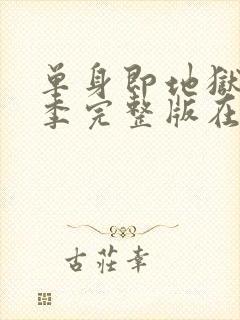 单身即地獄
季完整版在
古莊幸